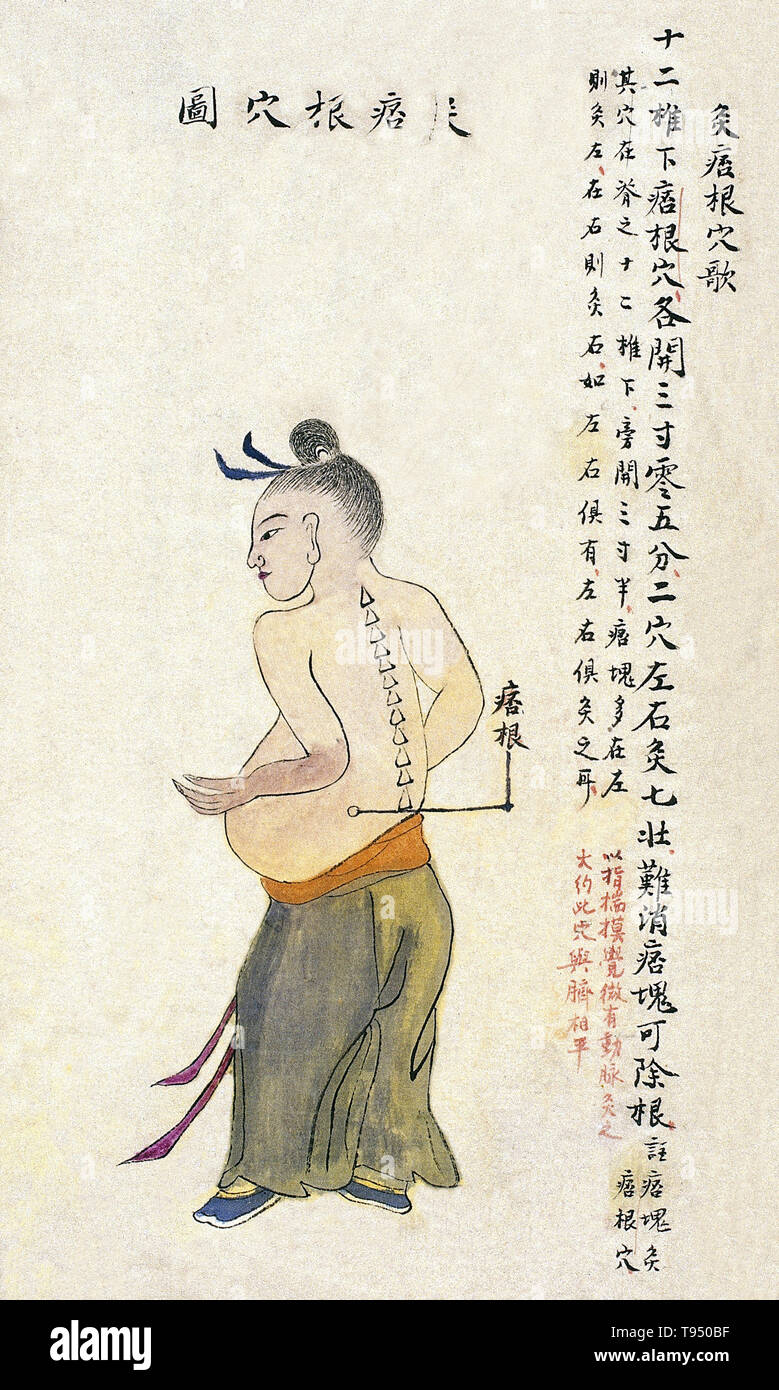 灸痞根穴歌
十二椎下痞根穴各開三寸零五分二穴左右灸七壯難消痞塊可除根註痞塊灸
痞根穴
其穴在脊之十二椎下旁開三寸半痞塊多在左
則灸左在右則灸右如左右俱有左右俱灸之耳
以指揣摸覺微有動脉灸之
大約此穴與臍相平
痞根穴圖
痞根
alamy
Image ID: T950BF
www.alamy.com